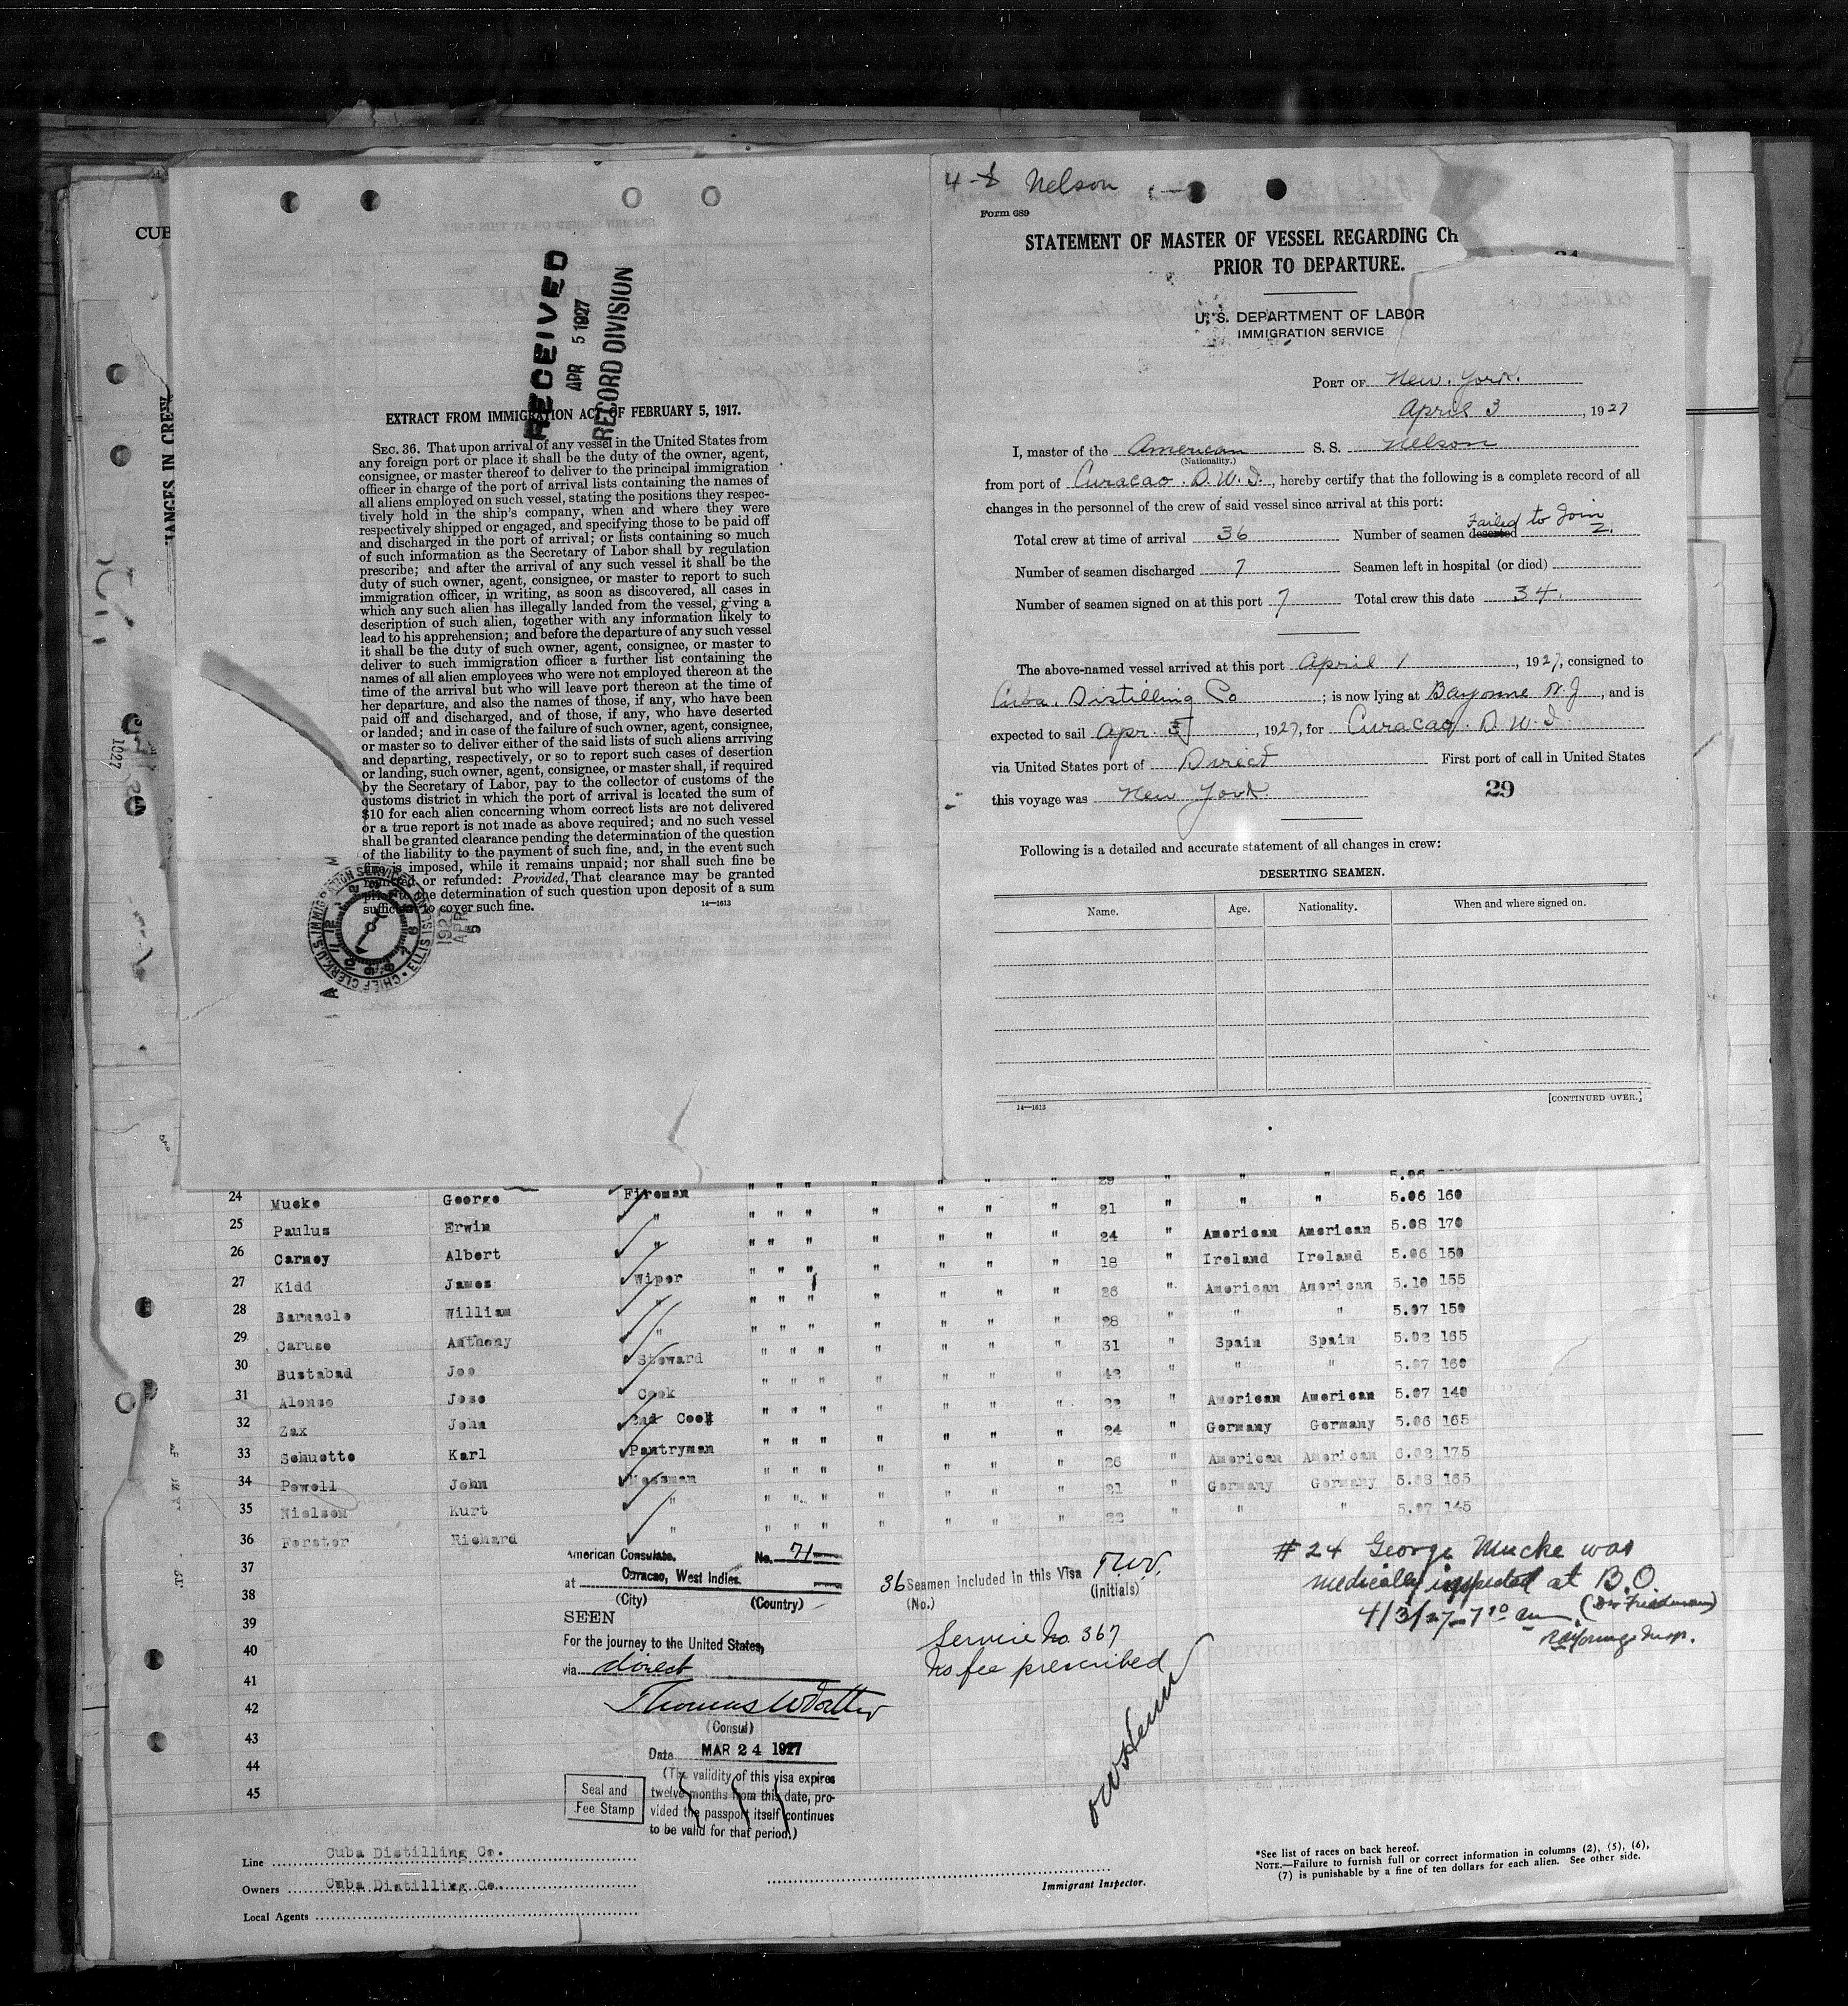 CUB
HANGES IN CREW
1927
RECEIVED
APR 5 1927
RECORD DIVISION
EXTRACT FROM IMMIGRATION ACT OF FEBRUARY 5, 1917.
SEC. 36. That upon arrival of any vessel in the United States from
any foreign port or place it shall be the duty of the owner, agent,
consignee, or master thereof to deliver to the principal immigration
officer in charge of the port of arrival lists containing the names of
all aliens employed on such vessel, stating the positions they respec-
tively hold in the ship's company, when and where they were
respectively shipped or engaged, and specifying those to be paid off
and discharged in the port of arrival; or lists containing so much
of such information as the Secretary of Labor shall by regulation
prescribe; and after the arrival of any such vessel it shall be the
duty of such owner, agent, consignee, or master to report to such
immigration officer, in writing, as soon as discovered, all cases in
which any such alien has illegally landed from the vessel, giving a
description of such alien, together with any information likely to
lead to his apprehension; and before the departure of any such vessel
it shall be the duty of such owner, agent, consignee, or master to
deliver to such immigration officer a further list containing the
names of all alien employees who were not employed thereon at the
time of the arrival but who will leave port thereon at the time of
her departure, and also the names of those, if any, who have been
paid off and discharged, and of those, if any, who have deserted
or landed; and in case of the failure of such owner, agent, consignee,
or master so to deliver either of the said lists of such aliens arriving
and departing, respectively, or so to report such cases of desertion
or landing, such owner, agent, consignee, or master shall, if required
by the Secretary of Labor, pay to the collector of customs of the
customs district in which the port of arrival is located the sum of
$10 for each alien concerning whom correct lists are not delivered
or a true report is not made as above required; and no such vessel
shall be granted clearance pending the determination of the question
of the liability to the payment of such fine, and, in the event such
fine is imposed, while it remains unpaid; nor shall such fine be
remitted or refunded: Provided, That clearance may be granted
prior to the determination of such question upon deposit of a sum
sufficient to cover such fine.
14—1613
CHIEF CLERK, U.S. IMMIGRATION SERVICE, ELLIS ISL
1927
APR
5
4-1 Nelson
Form 689
STATEMENT OF MASTER OF VESSEL REGARDING CH
PRIOR TO DEPARTURE.
U. S. DEPARTMENT OF LABOR
IMMIGRATION SERVICE
PORT OF New York.
April 3, 1927
I, master of the American S. S. Nelson
(Nationality.)
from port of Curacao. D. W. I., hereby certify that the following is a complete record of all
changes in the personnel of the crew of said vessel since arrival at this port:
Failed to Join
Total crew at time of arrival 36 Number of seamen deserted 2.
Number of seamen discharged 7 Seamen left in hospital (or died)
Number of seamen signed on at this port 7 Total crew this date 34.
The above-named vessel arrived at this port April 1, 1927, consigned to
Cuba. Distilling Co; is now lying at Bayonne N. J, and is
expected to sail Apr. 5, 1927, for Curacao. D. W. I.
via United States port of Direct First port of call in United States
this voyage was New York. 29
Following is a detailed and accurate statement of all changes in crew:
DESERTING SEAMEN.
Name. Age. Nationality. When and where signed on.
14—1613 [CONTINUED OVER.]
" " " " " " " 29 " " " 5.06
24 Mucke George Fireman " " " " " " " 21 " " " 5.06 160
25 Paulus Erwin " " " " " " " " 24 " American American 5.08 170
26 Carney Albert " " " " " " " " 18 " Ireland Ireland 5.06 150
27 Kidd James Wiper " " " " " " " 26 " American American 5.10 155
28 Barnacle William " " " " " " " " 28 " " " 5.07 150
29 Caruso Anthony " " " " " " " " 31 " Spain Spain 5.02 165
30 Bustabad Joe Steward " " " " " " " 42 " " " 5.07 160
31 Alonso Jose Cook " " " " " " " 22 " American American 5.07 140
32 Zax John 2nd Cook " " " " " " " 24 " Germany Germany 5.06 165
33 Schuette Karl Pantryman " " " " " " " 26 " American American 6.02 175
34 Powell John Messman " " " " " " " 21 " Germany Germany 5.08 165
35 Nielsen Kurt " " " " " " " " 22 " " " 5.07 145
36 Forster Richard " " " " " " " "
37
38
39
40
41
42
43
44
45
American Consulate. No. 71
at Curacao, West Indies.
(City) (Country)
SEEN
For the journey to the United States,
via direct
(Consul)
Date MAR 24 1927
(The validity of this visa expires
twelve months from this date, pro-
vided the passport itself continues
to be valid for that period.)
Seal and
Fee Stamp
36 Seamen included in this Visa T.W.V.
(No.) (initials)
Service No. 367
No fee prescribed
#24 George Mucke was
medically inspected at B.O.
4/3/27 – 7 10 am. (Dr Friedman)
Insp.
Line Cuba Distilling Co.
Owners Cuba Distilling Co.
Local Agents
Immigrant Inspector.
*See list of races on back hereof.
NOTE.—Failure to furnish full or correct information in columns (2), (5), (6),
(7) is punishable by a fine of ten dollars for each alien. See other side.